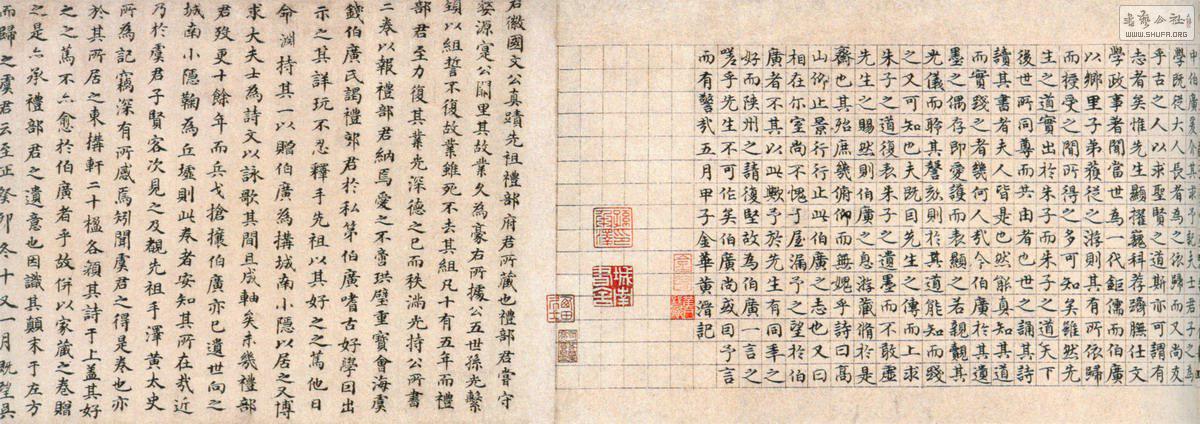 書藝公社
WWW.SHUFA.ORG
學既從大人長者為之依歸而又尚友
乎古之人以求聖賢之道斯亦可謂有
志者矣惟先生顯擢巍科荐躋膴仕文
學政事者聞當世為一代鉅儒而伯廣
以鄉里子弟獲從之游則其有所依歸
而授受之間所得之多可知矣雖然先
生之道實出於朱子而朱子之道天下
後世所同尊而共由者也世之誦其詩
讀其書者夫人皆是然能真知其道
而實踐之者幾何人哉今伯廣於其遺
墨之偶存即愛護而表顯之若親覿其
光儀而聆其謦欬則於其道能知而踐
之又可知也夫既因先生之傳而上求
朱子之道復表朱子之遺墨而不敢虛
先生之賜然則伯廣之息游藏脩於是
齋也其殆庶幾俯仰而無媿乎詩曰高
山仰止景行行止此伯廣之志也又曰
相在尔室尚不愧于屋漏予之望於伯
廣者不其以此歟予於先生有同年之
好而之請復堅故為先生一言之
嗟乎先生不可作矣伯廣尚或曰予言
而有警哉五月甲子金華黃溍記
城南
右徽國文公真蹟先祖禮部府君所藏也禮部君嘗守
婺源寔公闕里其故業久為豪右所據公五世孫光繫
頸以組誓不復故業雖死不去其組凡十有五年而禮
部君至力復其業光深德之已而秩滿光持公所書
二卷以報禮部君納焉愛之不啻珙璧重寶會海虞
錢伯廣氏謁禮部君於私第伯廣嗜古好學因出
示之其詳玩不忍釋手先祖以其好之之篤他日
命淵持其一以贈伯廣為搆城南小隱以居之又博
求大夫士為詩文以詠歌其間且成軸矣未幾禮部
君歿更十餘年而兵戈搶攘伯廣亦已遺世向之
城南小隱鞠為丘墟則此卷者安知其所在哉近
乃於虞君子賢客次見之及觀先祖手澤黃太史
所為記竊深有所感焉矧聞虞君之得是卷也亦
於其所居之東搆軒二十楹各額其詩于上蓋其好
之之篤不亦愈於伯廣者乎故併以家藏之卷贈
之是亦承禮部君之遺意也因識其顛末于左方
而歸之虞君云至正癸卯冬十又一月既望吳